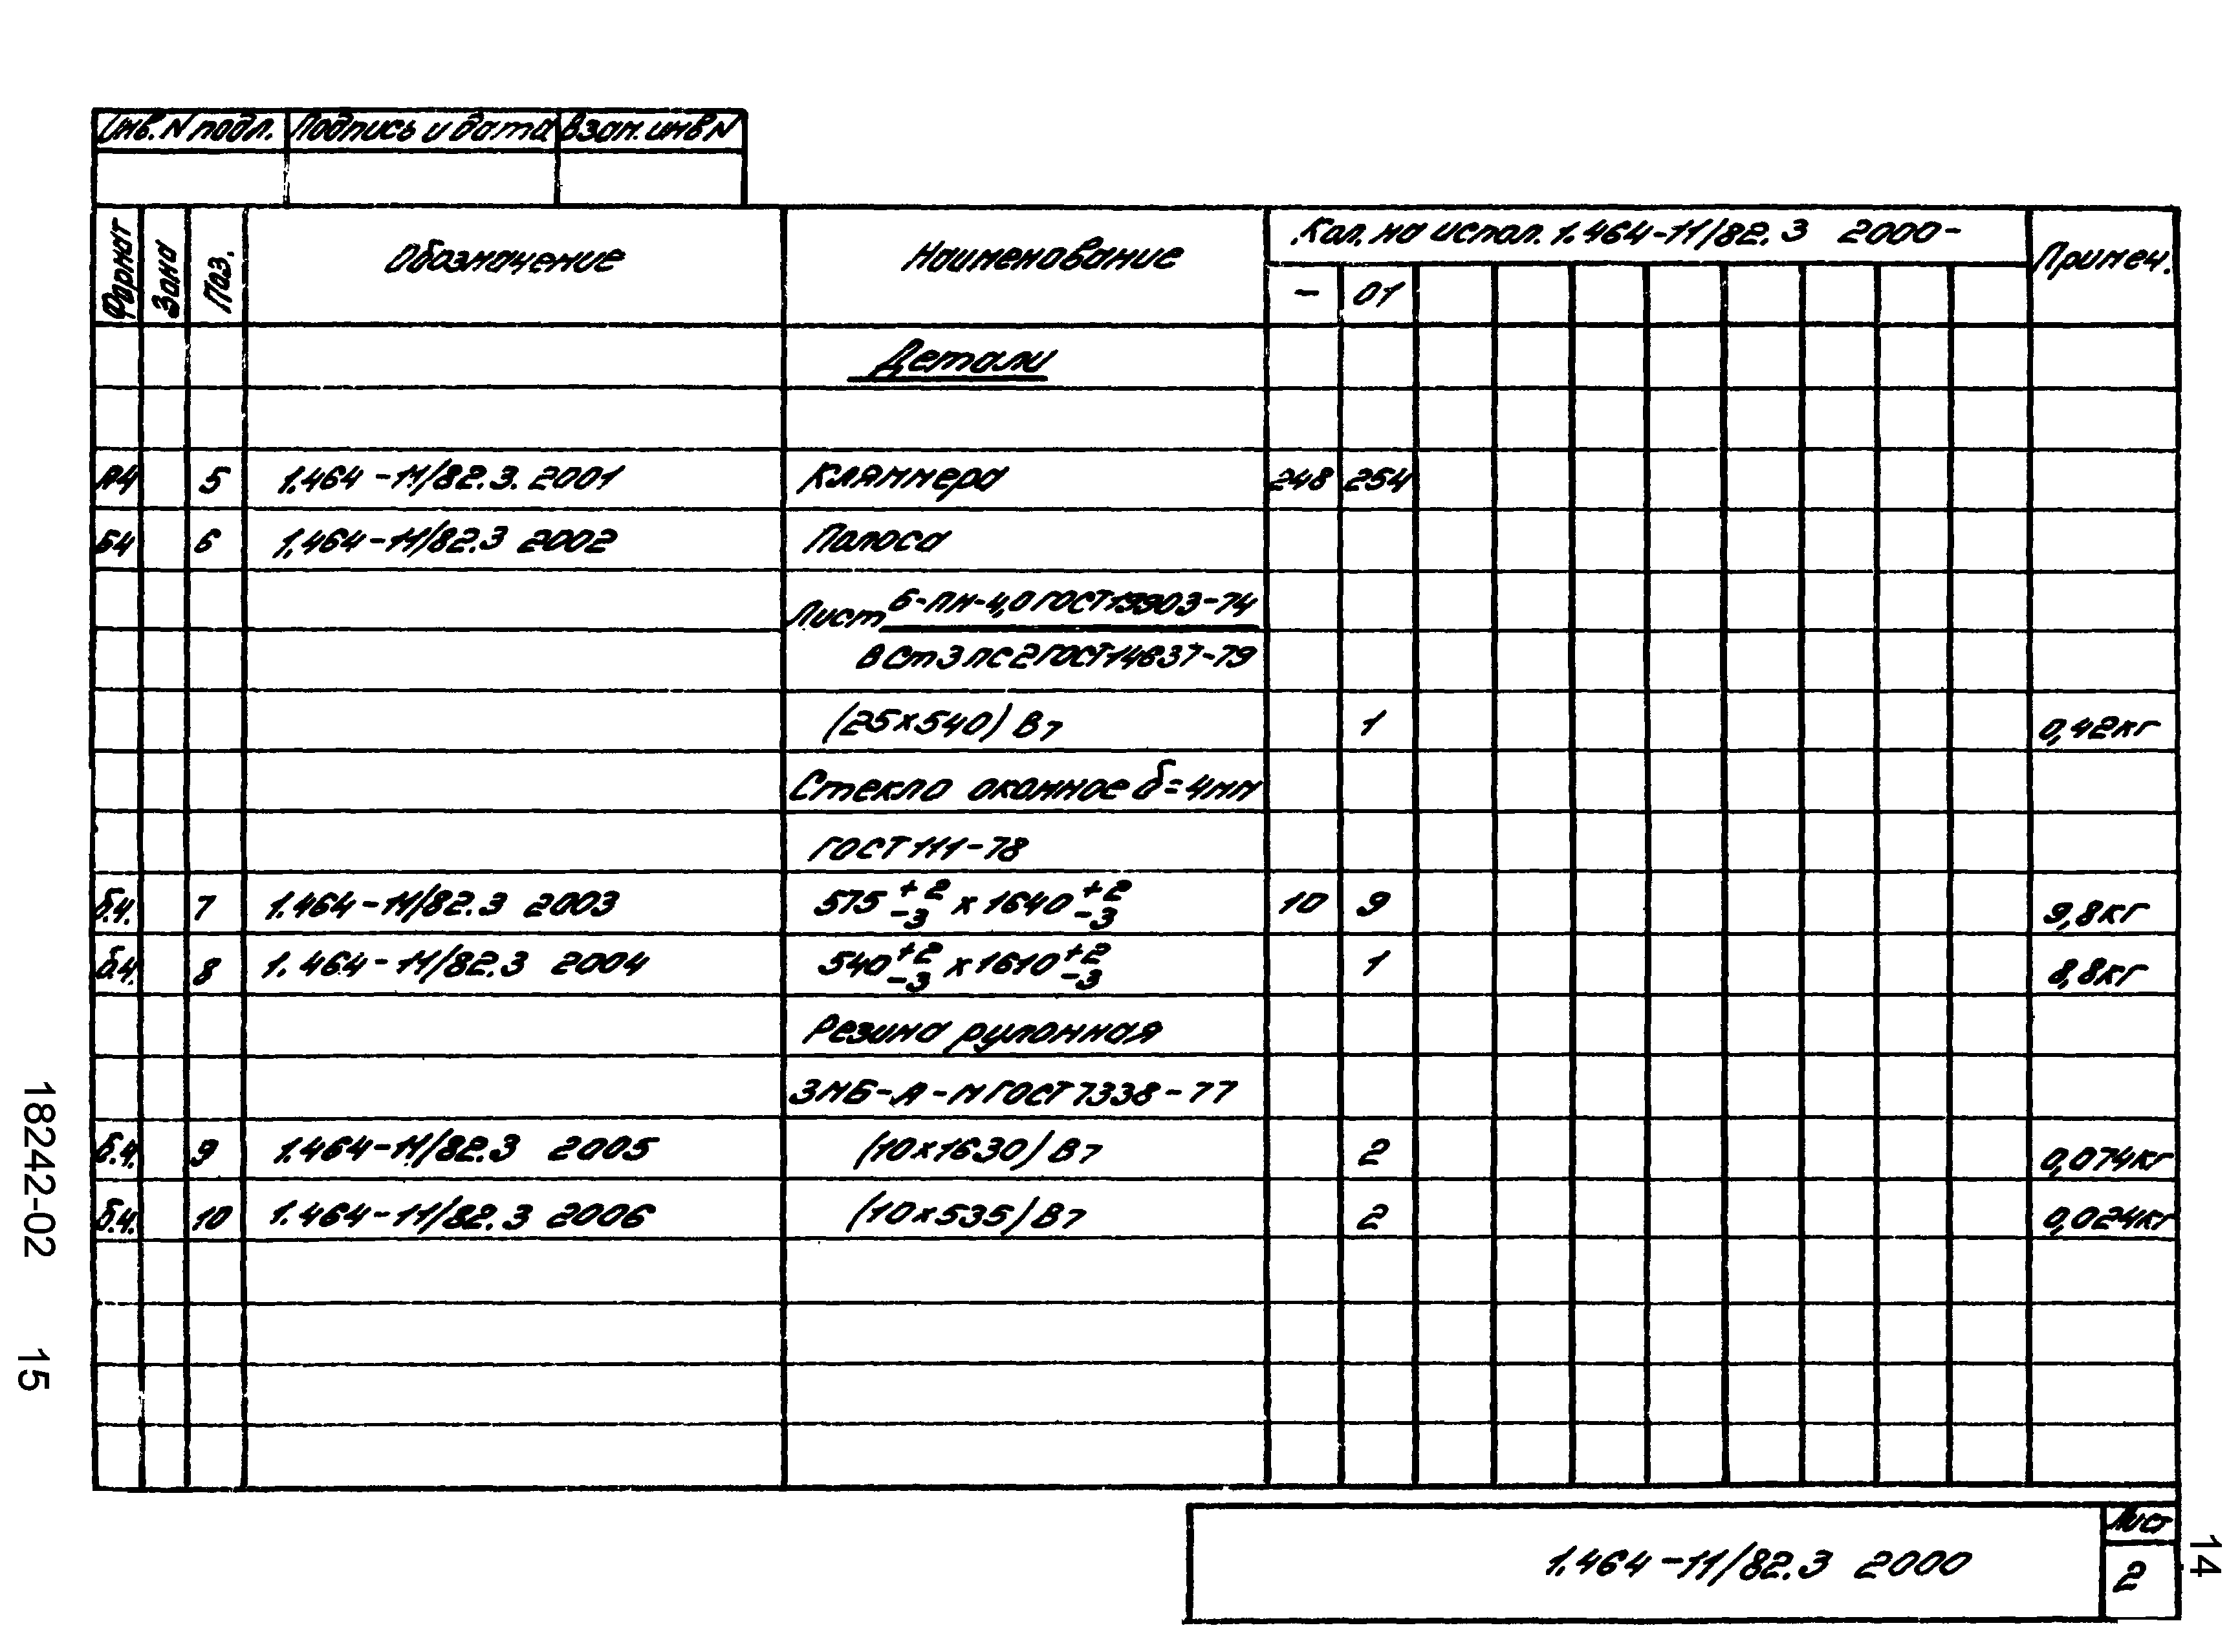 Инв. N подл. Подпись и дата Взам. инв N
Формат Зона Поз. Обозначение Наименование Кол. на испол. 1.464-11/82.3 2000- Примеч.
- 01
Детали
А4 5 1.464-11/82.3. 2001 Кляммера 248 254
Б4 6 1.464-11/82.3 2002 Полоса
Лист Б-ПН-4,0 ГОСТ 19903-74
В Ст 3 пс 2 ГОСТ 14637-79
(25х540) В7 1 0,42кг
Стекло оконное δ=4мм
ГОСТ 111-78
б.ч. 7 1.464-11/82.3 2003 575 +2 -3 х 1640 +2 -3 10 9 9,8кг
б.ч. 8 1.464-11/82.3 2004 540 +2 -3 х 1610 +2 -3 1 8,8кг
Резина рулонная
3МБ-А-М ГОСТ 7338-77
б.ч. 9 1.464-11/82.3 2005 (10х1630) В7 2 0,074кг
б.ч. 10 1.464-11/82.3 2006 (10х535) В7 2 0,024кг
1.464-11/82.3 2000
Лист
2
14
18242-02 15